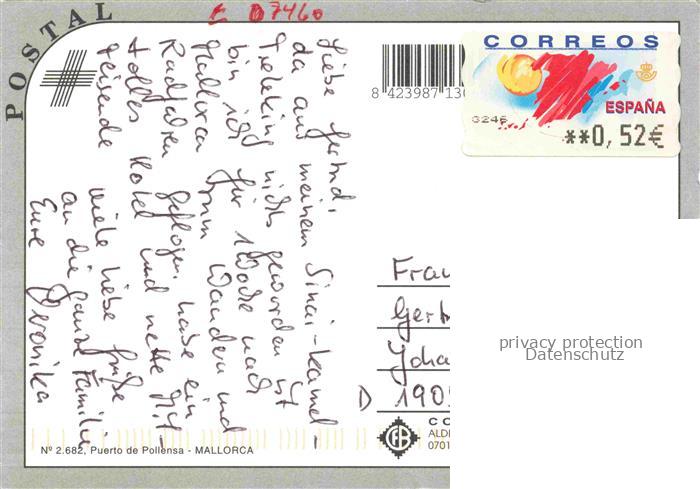 POSTAL
C D7460
Liebe Gertrud,
da aus meinem Sinai-Kamel-
Trekking nichts geworden ist
bin ich für 1 Woche nach
Mallorca zum Wandern und
Radfahren geflogen, habe ein
tolles Hotel und nette Mit-
reisende
Viele liebe Grüße
an die ganze Familie
Eure Veronika
8 423987 130
CORREOS
ESPAÑA
3246
**0,52€
Frau
Gert
Joha
D 190
privacy protection
Datenschutz
CO
ALDI
0701
Nº 2.682, Puerto de Pollensa - MALLORCA